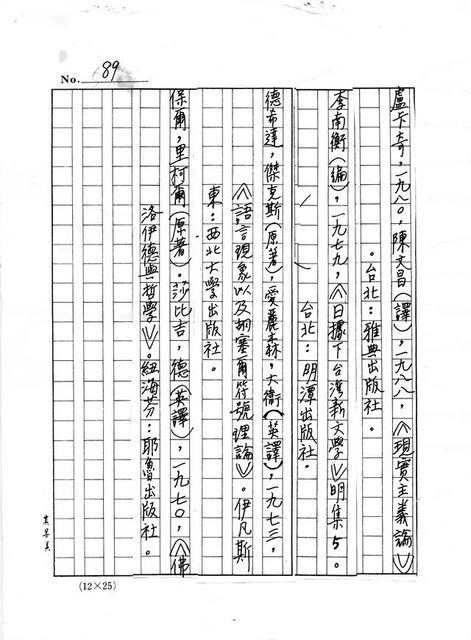 No. 89
盧卡奇，一九八〇，陳文昌（譯），一九八八，《現實主義論》
。台北：雅典出版社。
李南衡（編），一九七九，《日據下台灣新文學》明集5。
台北：明潭出版社。
德希達，傑克斯（原著），愛麗森，大衛（英譯），一九七三，
《語言現象以及胡塞爾符號理論》。伊凡斯
東：西北大學出版社。
保爾，里柯爾（原著）。莎比吉，德（英譯），一九七〇，《佛
洛伊德與哲學》。紐海芬：耶魯出版社。
(12×25)